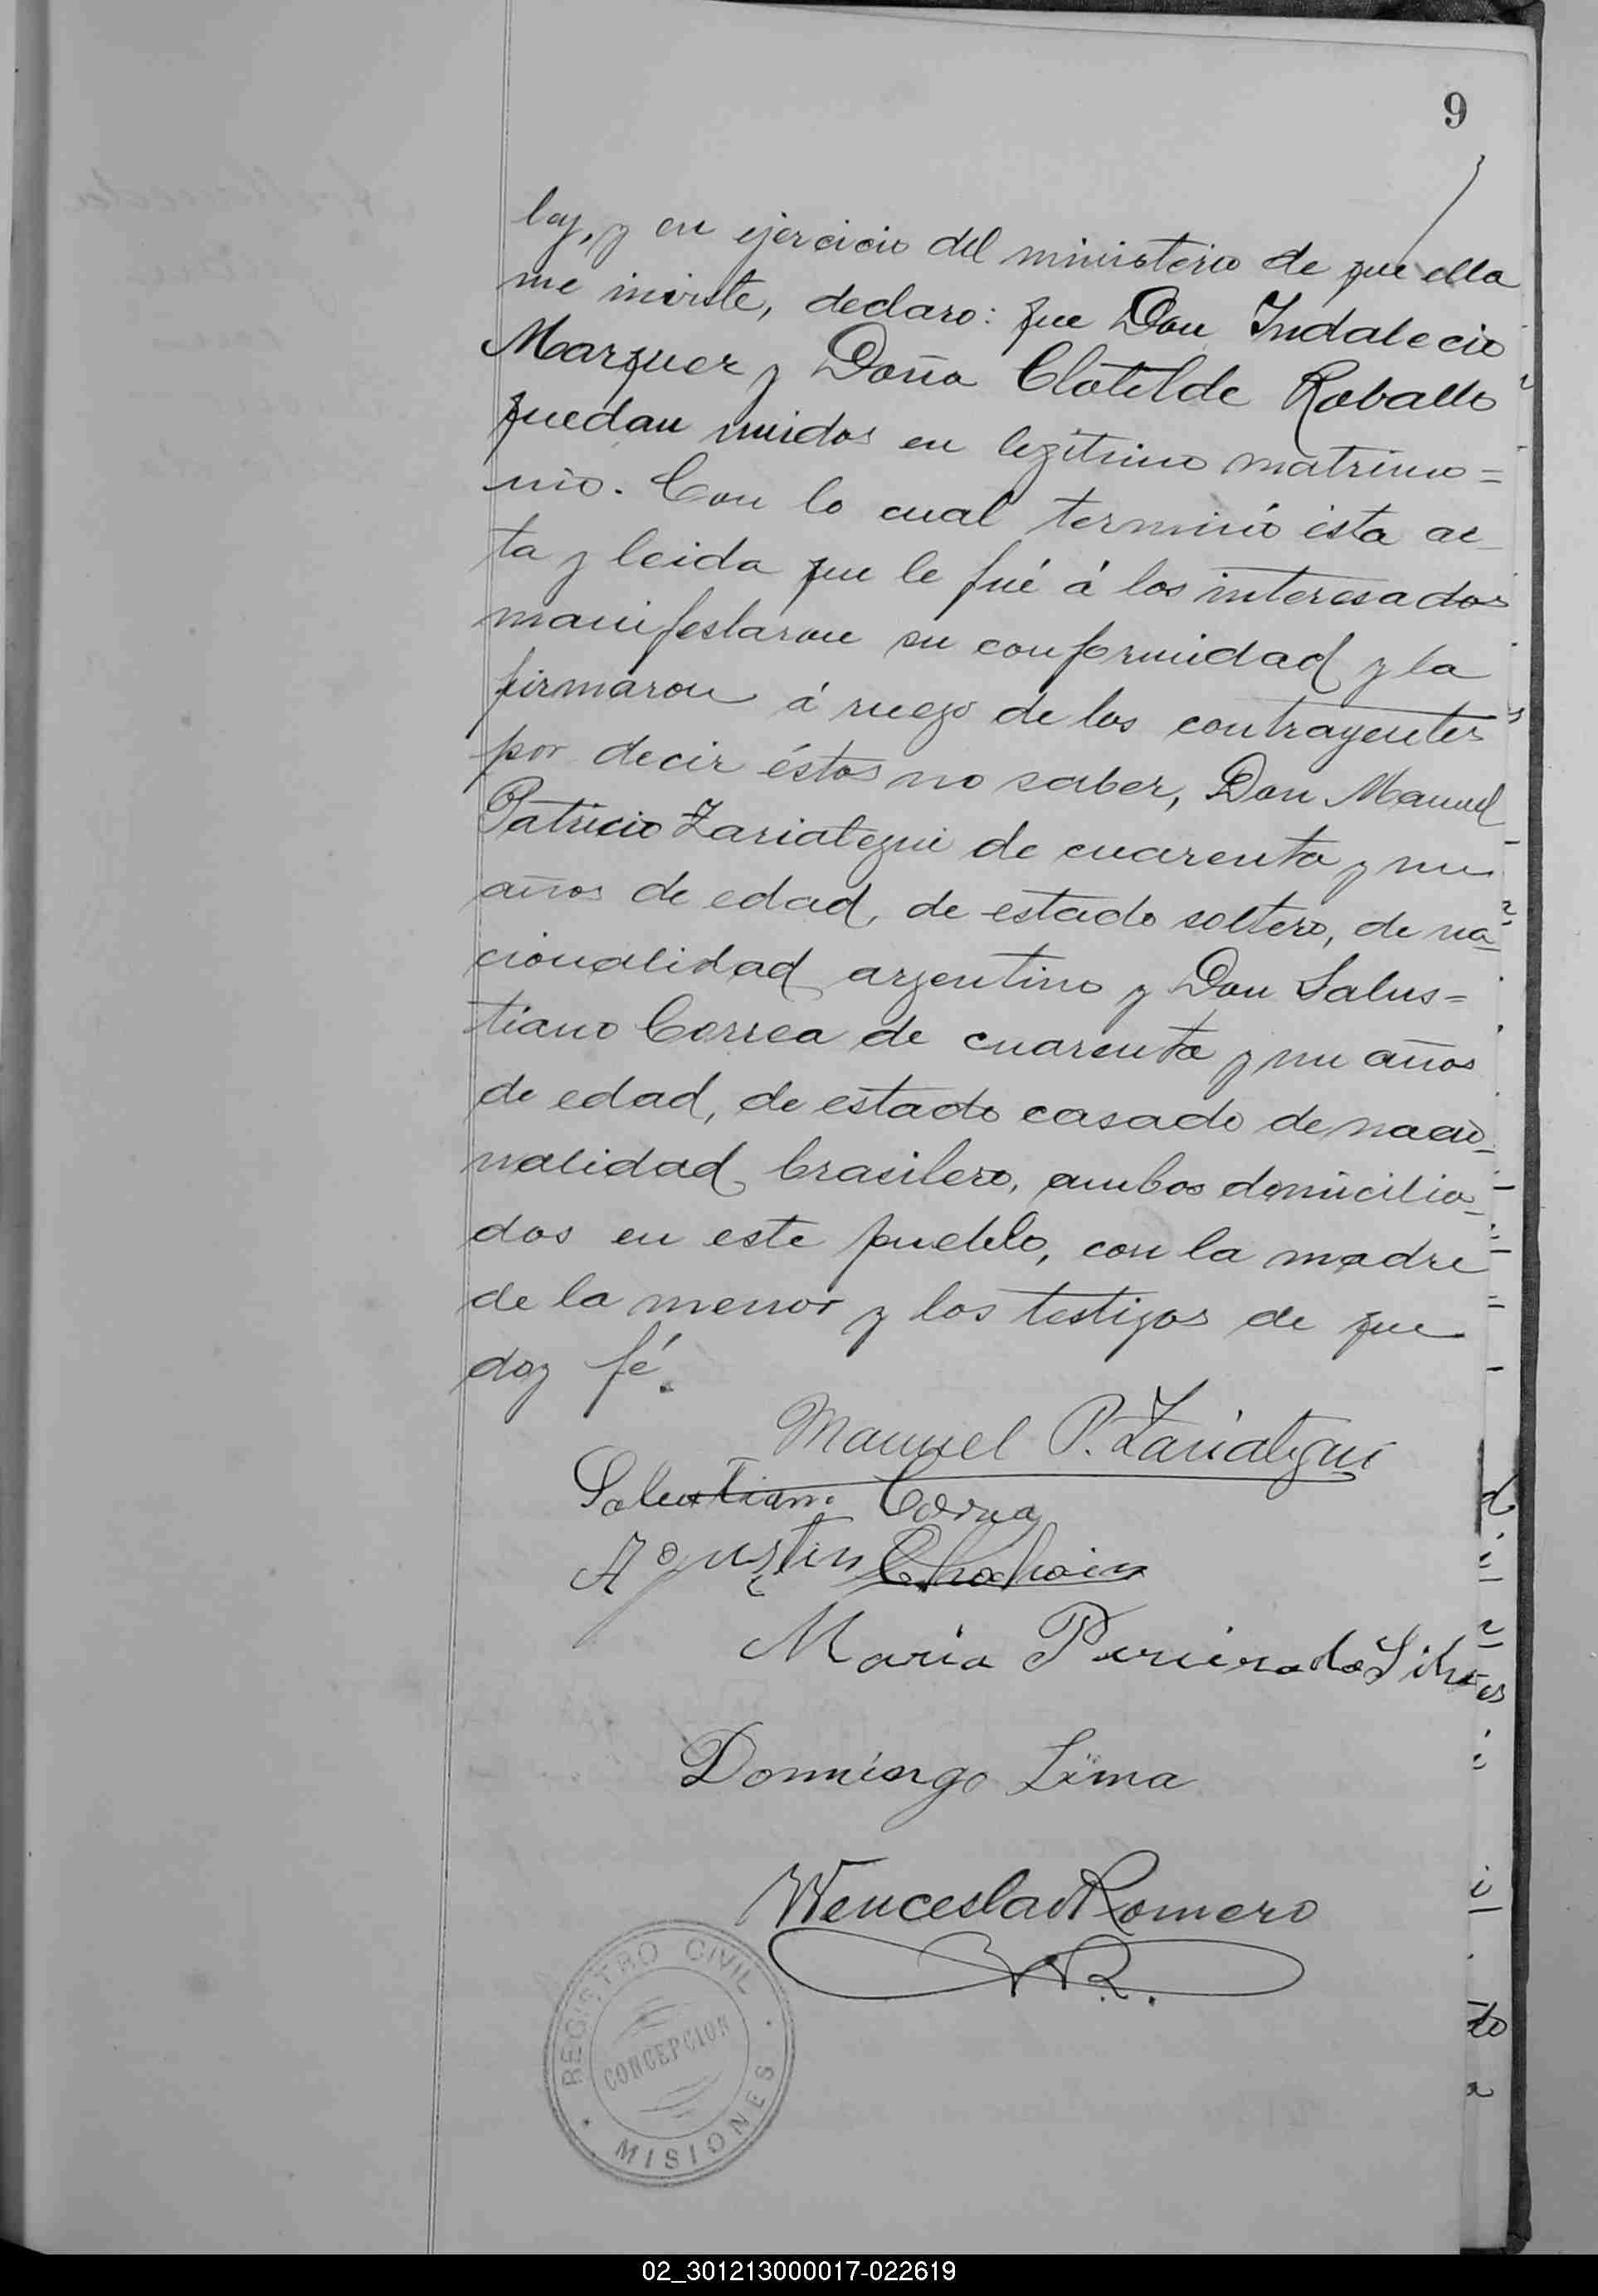 9
ley, y en ejercicio del ministerio de que ella
me inviste, declaro: que Don Indalecio
Marquez y Doña Clotilde Roballo
quedan unidos en legitimo matrimo=
nio. Con lo cual terminó ésta ac_
ta y leida que le fué á los interesados
manifestaron su conformidad y la
firmaron á ruego de los contrayentes
por decir éstos no saber, Don Manuel
Patricio Zariategui de cuarenta y un
años de edad, de estado soltero, de na_
cionalidad argentino y Don Salus=
tiano Correa de cuarenta y un años
de edad, de estado casado de nacio_
nalidad brasilero, ambos domicilia_
dos en este pueblo, con la madre
de la menor y los testigos de que
doy fé.
Manuel P. Zariategui
Salustiano Correa
Agustin
Maria Pereira da Silva
Domingo Lima
Wenceslao Romero
WR.
REGISTRO CIVIL
CONCEPCION
MISIONES
02_301213000017-022619